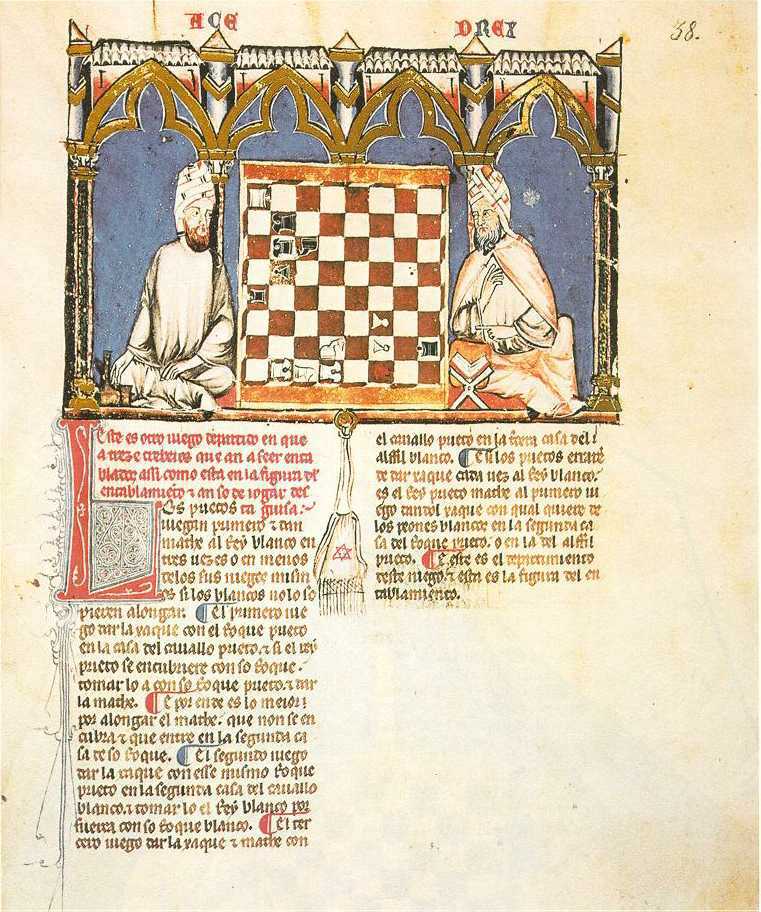 ACE DREX
38.
Este es otro iuego departido en que
a treze trebeios que an a seer enta
blados assi como esta en la figura del
entablamiento & an se de iogar desta guisa.
Los prietos
iuegan primero & dan
mathe al Rey blanco en
tres uezes o en menos
delos sus iuegos mismos
si los blancos no lo so
pieren alongar. El primero iue
go dar la xaque con el Roque prieto
en la casa del cauallo prieto. & si el rey
prieto se encubriere con so Roque.
tomar lo a con so Roque prieto. & dar
la mathe. E por ende es lo meior
por alongar el mathe. que non se en
cubra & que entre en la segunda ca
sa de so Roque. El segundo iuego
dar la xaque con esse mismo Roque
prieto en la segunda casa del cauallo
blanco. & tomar lo el Rey blanco por
fuerça con so Roque blanco. El ter
cero iuego dar la xaque & mathe con
el cauallo prieto en la tercera casa del
alffil blanco. E si los prietos errare
de dar xaque cada uez al Rey blanco.
es el Rey prieto mathe al primero iu
ego dandol xaque con qual quiere de
los peones blancos en la segunda ca
sa del Roque prieto. o en la del alffil
prieto. E este es el departimiento
deste iuego. & esta es la figura del en
tablamiento.